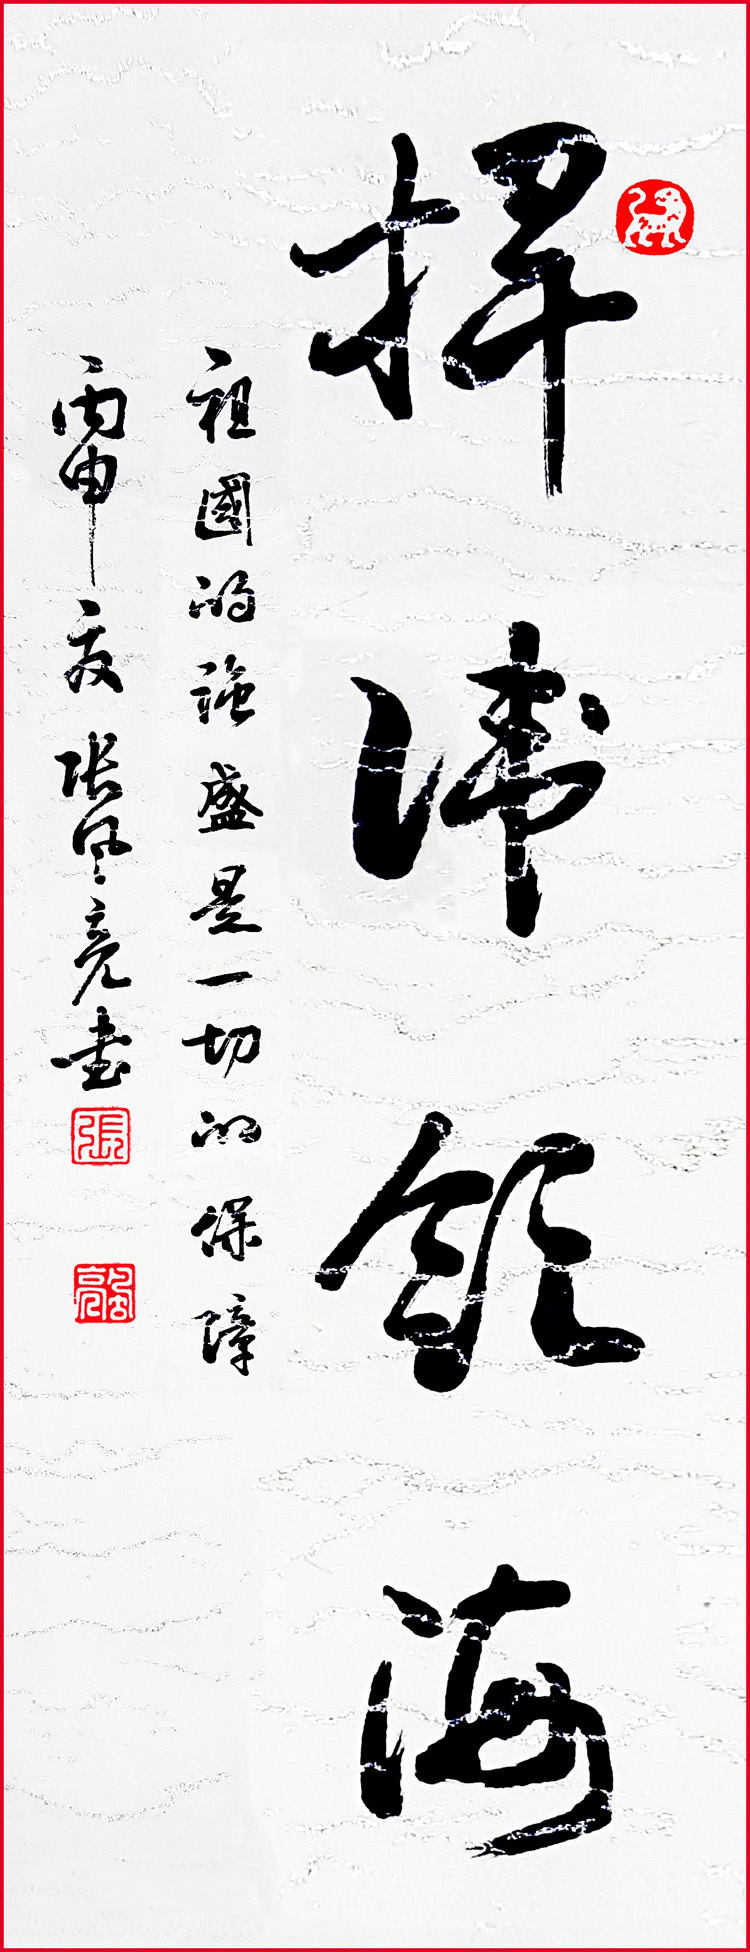 捍衛領海
祖國的強盛是一切的保障
丙申夏張風亮書
張